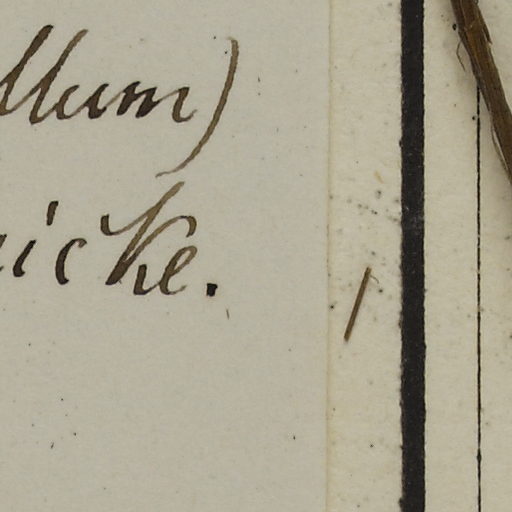 llum)
icke.